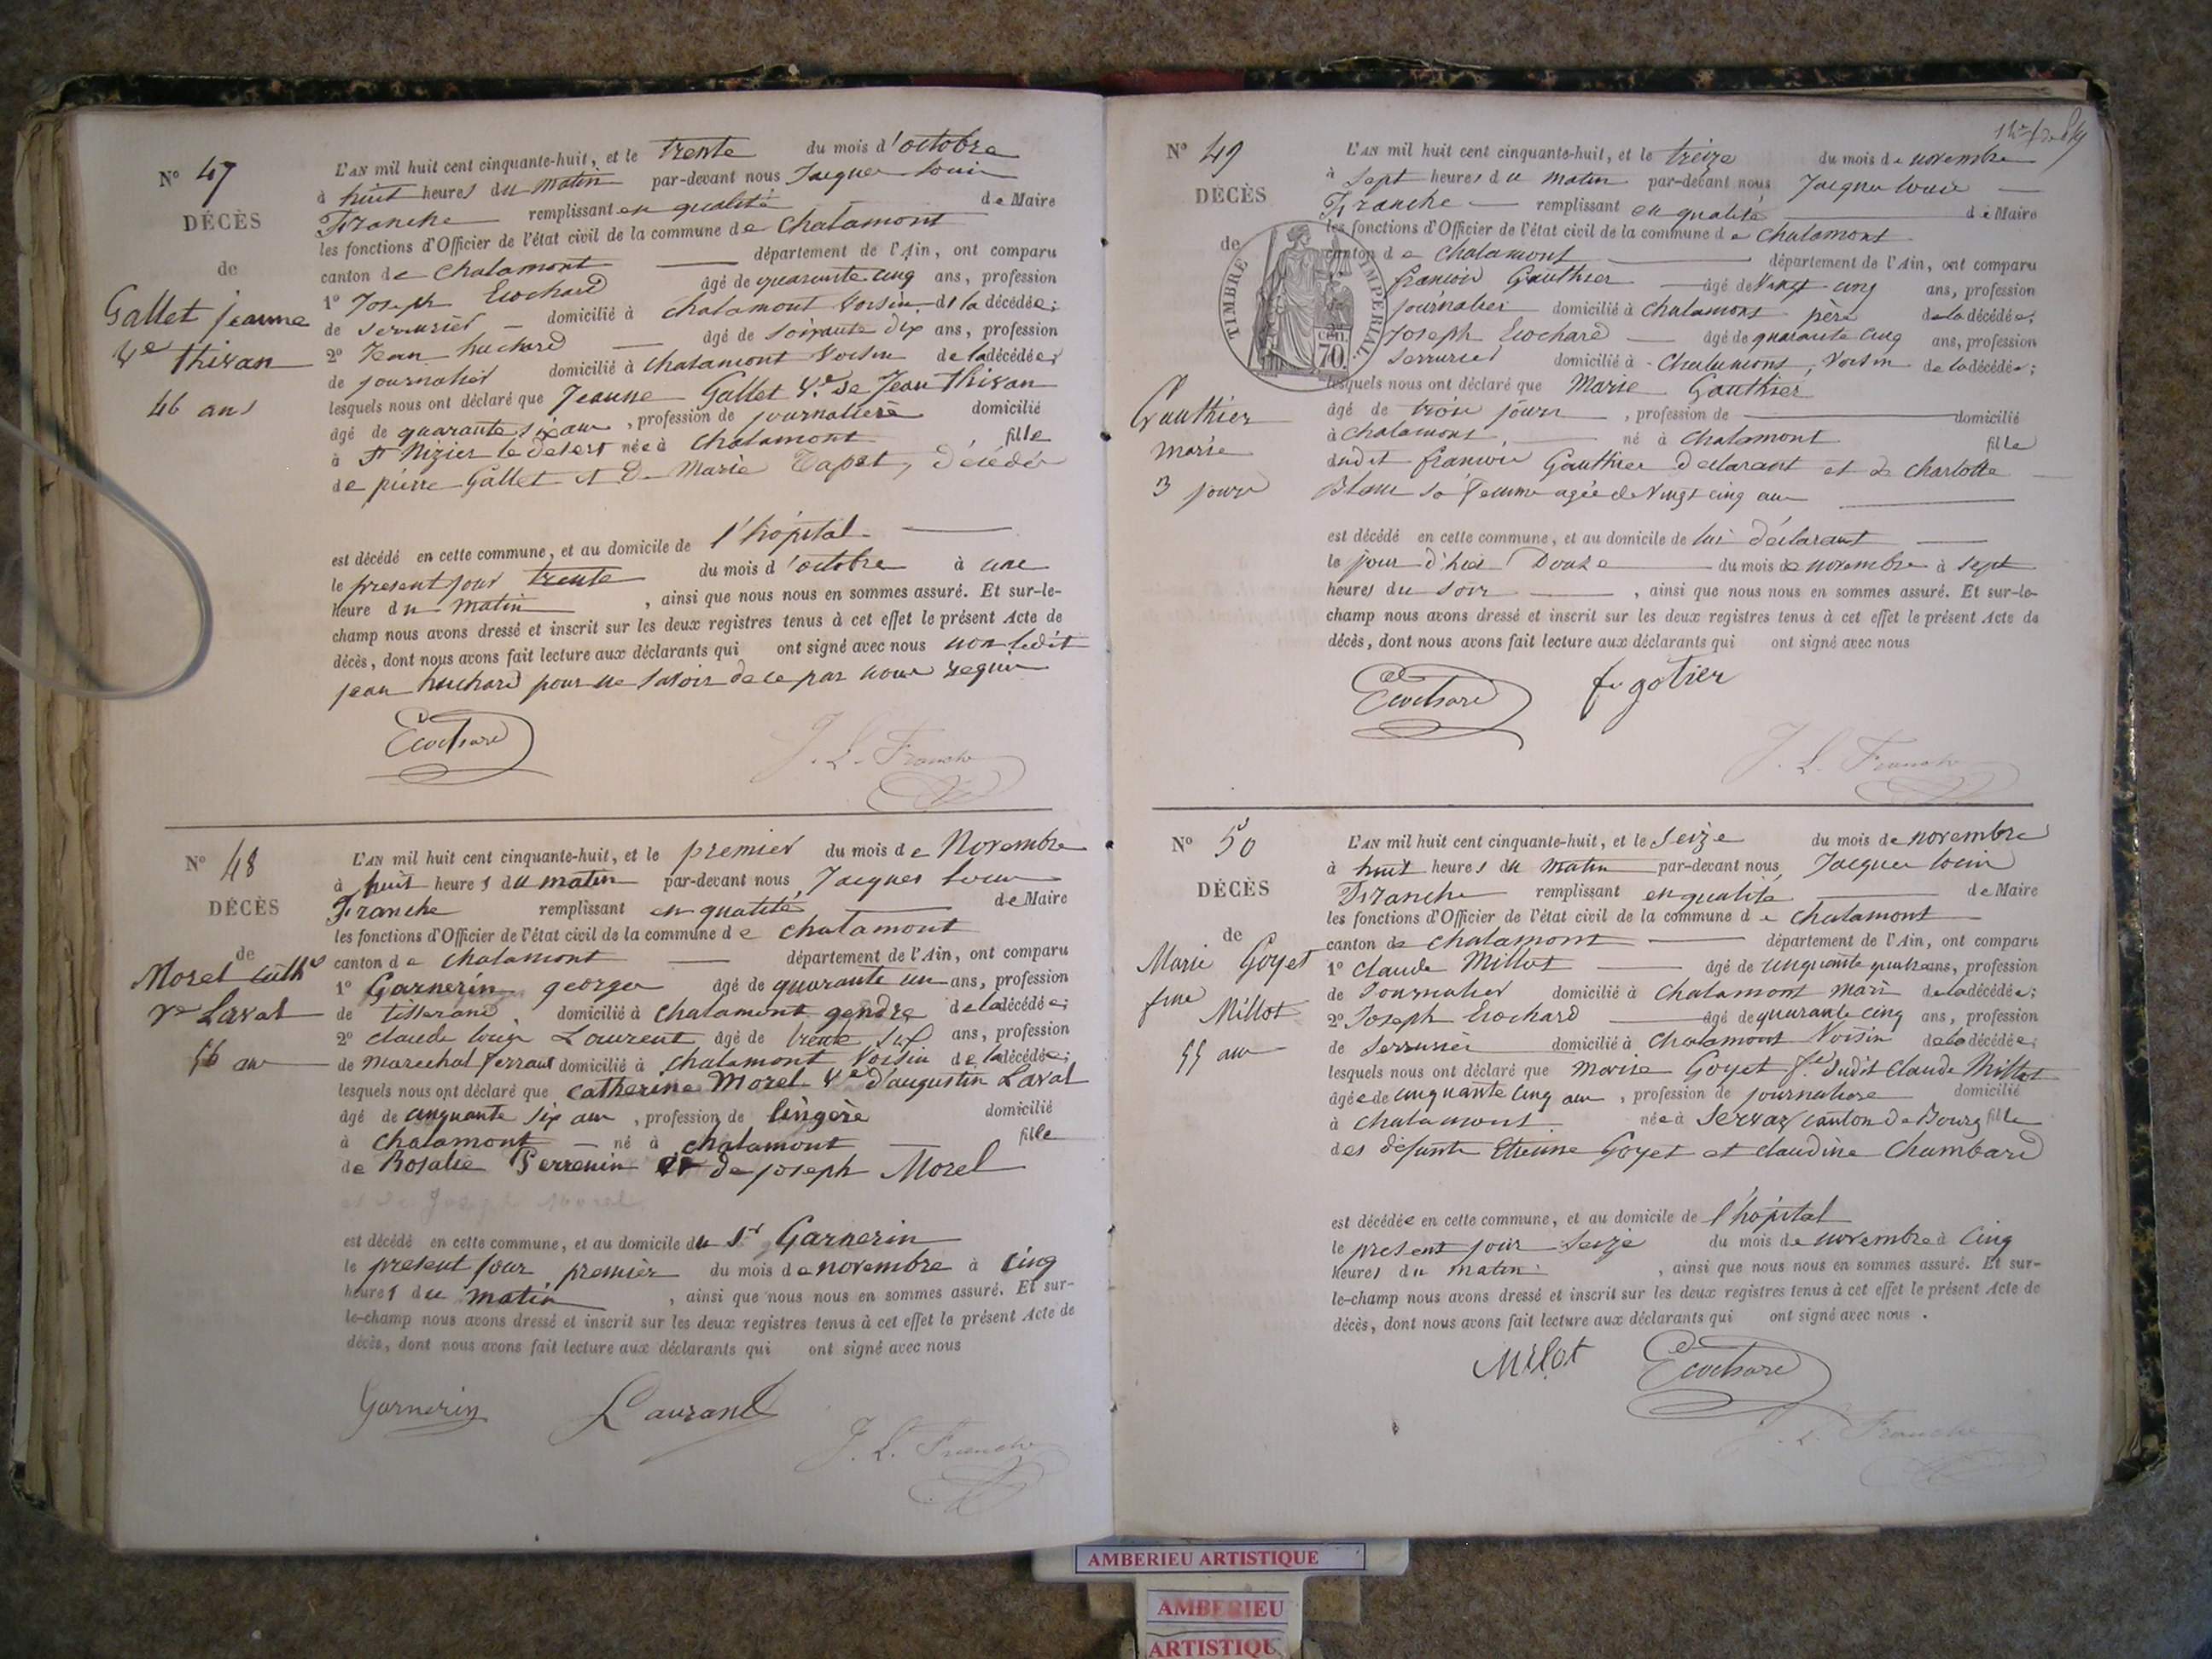 N° 47
DÉCÈS
de
Gallet jeanne
Ve thivan
46 ans
L'AN mil huit cent cinquante-huit, et le trente du mois d'octobre
à huit heures du matin par-devant nous Jacques Louis
Franche remplissant en qualité de Maire
les fonctions d'Officier de l'état civil de la commune de Chalamont
canton de Chalamont département de l'Ain, ont comparu
1° Joseph Ecochard âgé de quarante cinq ans, profession
de serrurier domicilié à Chalamont Voisin de la décédée;
2° Jean huchard âgé de soixante dix ans, profession
de journalier domicilié à Chalamont Voisin de la décédée;
lesquels nous ont déclaré que Jeanne Gallet Ve de Jean Thivan
âgé de quarante six ans, profession de journalière domicilié
à St Nizier le desert née à Chalamont fille
de pierre Gallet et De Marie Tapet, décédée
est décédé en cette commune, et au domicile de l'hôpital
le present jour trente du mois d'octobre à une
heure du matin, ainsi que nous nous en sommes assuré. Et sur-le-
champ nous avons dressé et inscrit sur les deux registres tenus à cet effet le présent Acte de
décès, dont nous avons fait lecture aux déclarants qui ont signé avec nous non ledit
jean huchard pour ne savoir de ce par nous requis
Ecochard
J. L. Franche
N° 48
DÉCÈS
de
Morel cathe
Ve Laval
56 ans
L'AN mil huit cent cinquante-huit, et le premier du mois de Novembre
à huit heures du matin par-devant nous Jacques Louis
Franche remplissant en qualité de Maire
les fonctions d'Officier de l'état civil de la commune de Chalamont
canton de Chalamont département de l'Ain, ont comparu
1° Garnerin george âgé de quarante un ans, profession
de tisserand domicilié à Chalamont gendre de la décédée;
2° claude louis Laurent âgé de trente six ans, profession
de marechal ferrant domicilié à Chalamont Voisin de la décédée;
lesquels nous ont déclaré que Catherine Morel Ve d'augustin Laval
âgé de cinquante six ans, profession de lingère domicilié
à Chalamont né à Chalamont fille
de Rosalie Perrenin et de joseph Morel
et de Joseph Morel
est décédé en cette commune, et au domicile du Sr Garnerin
le present jour premier du mois de novembre à cinq
heures du matin, ainsi que nous nous en sommes assuré. Et sur-
le-champ nous avons dressé et inscrit sur les deux registres tenus à cet effet le présent Acte de
décès, dont nous avons fait lecture aux déclarants qui ont signé avec nous
Garnerin Laurand
J. L. Franche
N° 49
DÉCÈS
de
TIMBRE IMPÉRIAL
CEN. 70.
Gauthier
marie
3 jours
L'AN mil huit cent cinquante-huit, et le treize du mois de novembre
à sept heures du matin par-devant nous Jacques Louis
Franche remplissant en qualité de Maire
les fonctions d'Officier de l'état civil de la commune de Chalamont
canton de Chalamont département de l'Ain, ont comparu
francois Gauthier âgé de Vingt cinq ans, profession
journalier domicilié à Chalamont père de la décédée;
Joseph Ecochard âgé de quarante cinq ans, profession
serrurier domicilié à Chalamont, Voisin de la décédée;
lesquels nous ont déclaré que Marie Gauthier
âgé de trois jours, profession de domicilié
à Chalamont, né à Chalamont fille
dudit francois Gauthier declarant et de Charlotte
Blanc sa femme agée de Vingt cinq ans
est décédé en cette commune, et au domicile de lui déclarant
le jour d'hier Douze du mois de novembre à sept
heures du soir, ainsi que nous nous en sommes assuré. Et sur-le-
champ nous avons dressé et inscrit sur les deux registres tenus à cet effet le présent Acte de
décès, dont nous avons fait lecture aux déclarants qui ont signé avec nous
Ecochard f gotier
J. L. Franche
N° 50
DÉCÈS
de
Marie Goyet
fme Millot
55 ans
L'AN mil huit cent cinquante-huit, et le seize du mois de novembre
à huit heures du matin par-devant nous Jacques Louis
Franche remplissant en qualité de Maire
les fonctions d'Officier de l'état civil de la commune de Chalamont
canton de Chalamont département de l'Ain, ont comparu
1° Claude Millot âgé de cinquante quatre ans, profession
de Journalier domicilié à Chalamont Mari de la décédée;
2° Joseph Ecochard âgé de quarante cinq ans, profession
de serrurier domicilié à Chalamont Voisin de la décédée;
lesquels nous ont déclaré que Marie Goyet fe dudit Claude Millot
âgée de cinquante cinq ans, profession de journalière domicilié
à Chalamont née à Servas canton de Bourg fille
des défunts Etienne Goyet et claudine Chambard
est décédée en cette commune, et au domicile de l'hôpital
le present jour seize du mois de novembre à cinq
heures du matin, ainsi que nous nous en sommes assuré. Et sur-
le-champ nous avons dressé et inscrit sur les deux registres tenus à cet effet le présent Acte de
décès, dont nous avons fait lecture aux déclarants qui ont signé avec nous.
Milot Ecochard
J. L. Franche
AMBERIEU ARTISTIQUE
AMBERIEU
ARTISTIQU